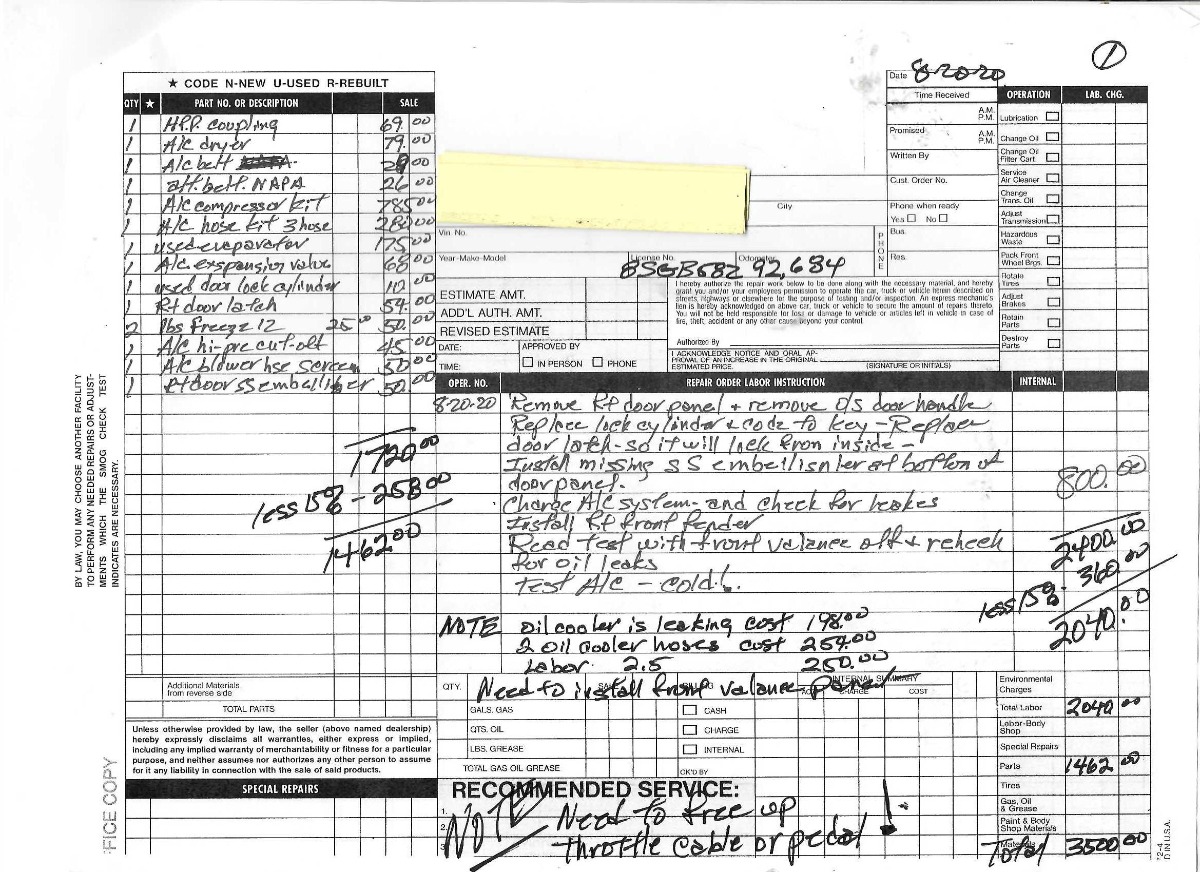 1
★ CODE N-NEW U-USED R-REBUILT
QTY ★ PART NO. OR DESCRIPTION SALE
1 H.P.P. coupling 69.00
1 A/c dryer 79.00
1 A/c belt 29.00
1 alt. belt. NAPA 26.00
1 A/c compressor kit 785.00
1 A/c hose kit 3 hose 280.00
1 used evaporator 175.00
1 A/c exspansion valve 68.00
1 used door lock cylinder 110
1 Rt door latch 54.00
2 lbs freeze 12 25.00 50.00
1 A/c hi-pre cut-off 45.00
1 A/c blower hse screen 50.00
1 Rt door SS embellisher 50.00
1720.00
less 15% - 258.00
1462.00
BY LAW, YOU MAY CHOOSE ANOTHER FACILITY
TO PERFORM ANY NEEDED REPAIRS OR ADJUST-
MENTS WHICH THE SMOG CHECK TEST
INDICATES ARE NECESSARY.
Additional Materials
from reverse side
TOTAL PARTS
Unless otherwise provided by law, the seller (above named dealership)
hereby expressly disclaims all warranties, either express or implied,
including any implied warranty of merchantability or fitness for a particular
purpose, and neither assumes nor authorizes any other person to assume
for it any liability in connection with the sale of said products.
SPECIAL REPAIRS
FICE COPY
Date 8-20-20
Time Received
A.M.
P.M.
Promised A.M.
P.M.
Written By
Cust. Order No.
City
Phone when ready
Yes No
Vin. No.
PHONE
Bus.
Res.
Year-Make-Model License No. Odometer
8SGB682 92,684
ESTIMATE AMT.
ADD'L AUTH. AMT.
REVISED ESTIMATE
DATE: APPROVED BY
TIME: IN PERSON PHONE
I hereby authorize the repair work below to be done along with the necessary material, and hereby
grant you and/or your employees permission to operate the car, truck or vehicle herein described on
streets, highways or elsewhere for the purpose of testing and/or inspection. An express mechanic's
lien is hereby acknowledged on above car, truck or vehicle to secure the amount of repairs thereto.
You will not be held responsible for loss or damage to vehicle or articles left in vehicle in case of
fire, theft, accident or any other cause beyond your control.
Authorized By
I ACKNOWLEDGE NOTICE AND ORAL AP-
PROVAL OF AN INCREASE IN THE ORIGINAL
ESTIMATED PRICE. (SIGNATURE OR INITIALS)
OPERATION LAB. CHG.
Lubrication
Change Oil
Change Oil
Filter Cart.
Service
Air Cleaner
Change
Trans. Oil
Adjust
Transmission
Hazardous
Waste
Pack Front
Wheel Brgs.
Rotate
Tires
Adjust
Brakes
Retain
Parts
Destroy
Parts
OPER. NO. REPAIR ORDER LABOR INSTRUCTION INTERNAL
8-20-20 Remove Rt door panel + remove O/S door handle
Replace lock cylinder & code to key - Replace
door latch - so it will lock from inside -
Install missing SS embellishler at bottom of
door panel. 800.00
Charge A/c system- and check for leakes
Install Rt front fender
Road test with front valance off + reheck
for oil leaks
Test A/C - cold!
2400.00
less 15% - 360.00
2040.00
NOTE oil cooler is leaking cost 198.00
2 oil cooler hoses cost 259.00
Labor 2.5 250.00
Need to install front valance panel
QTY. INTERNAL SUMMARY
CHARGE COST
GALS. GAS CASH
QTS. OIL CHARGE
LBS. GREASE INTERNAL
TOTAL GAS OIL GREASE OK'D BY
RECOMMENDED SERVICE:
1.
2.
3.
NOTE Need to free up
throttle cable or pedal!
Environmental
Charges
Total Labor 2040.00
Labor-Body
Shop
Special Repairs
Parts 1462.00
Tires
Gas, Oil
& Grease
Paint & Body
Shop Materials
Materials
Total 3500.00
D IN U.S.A.